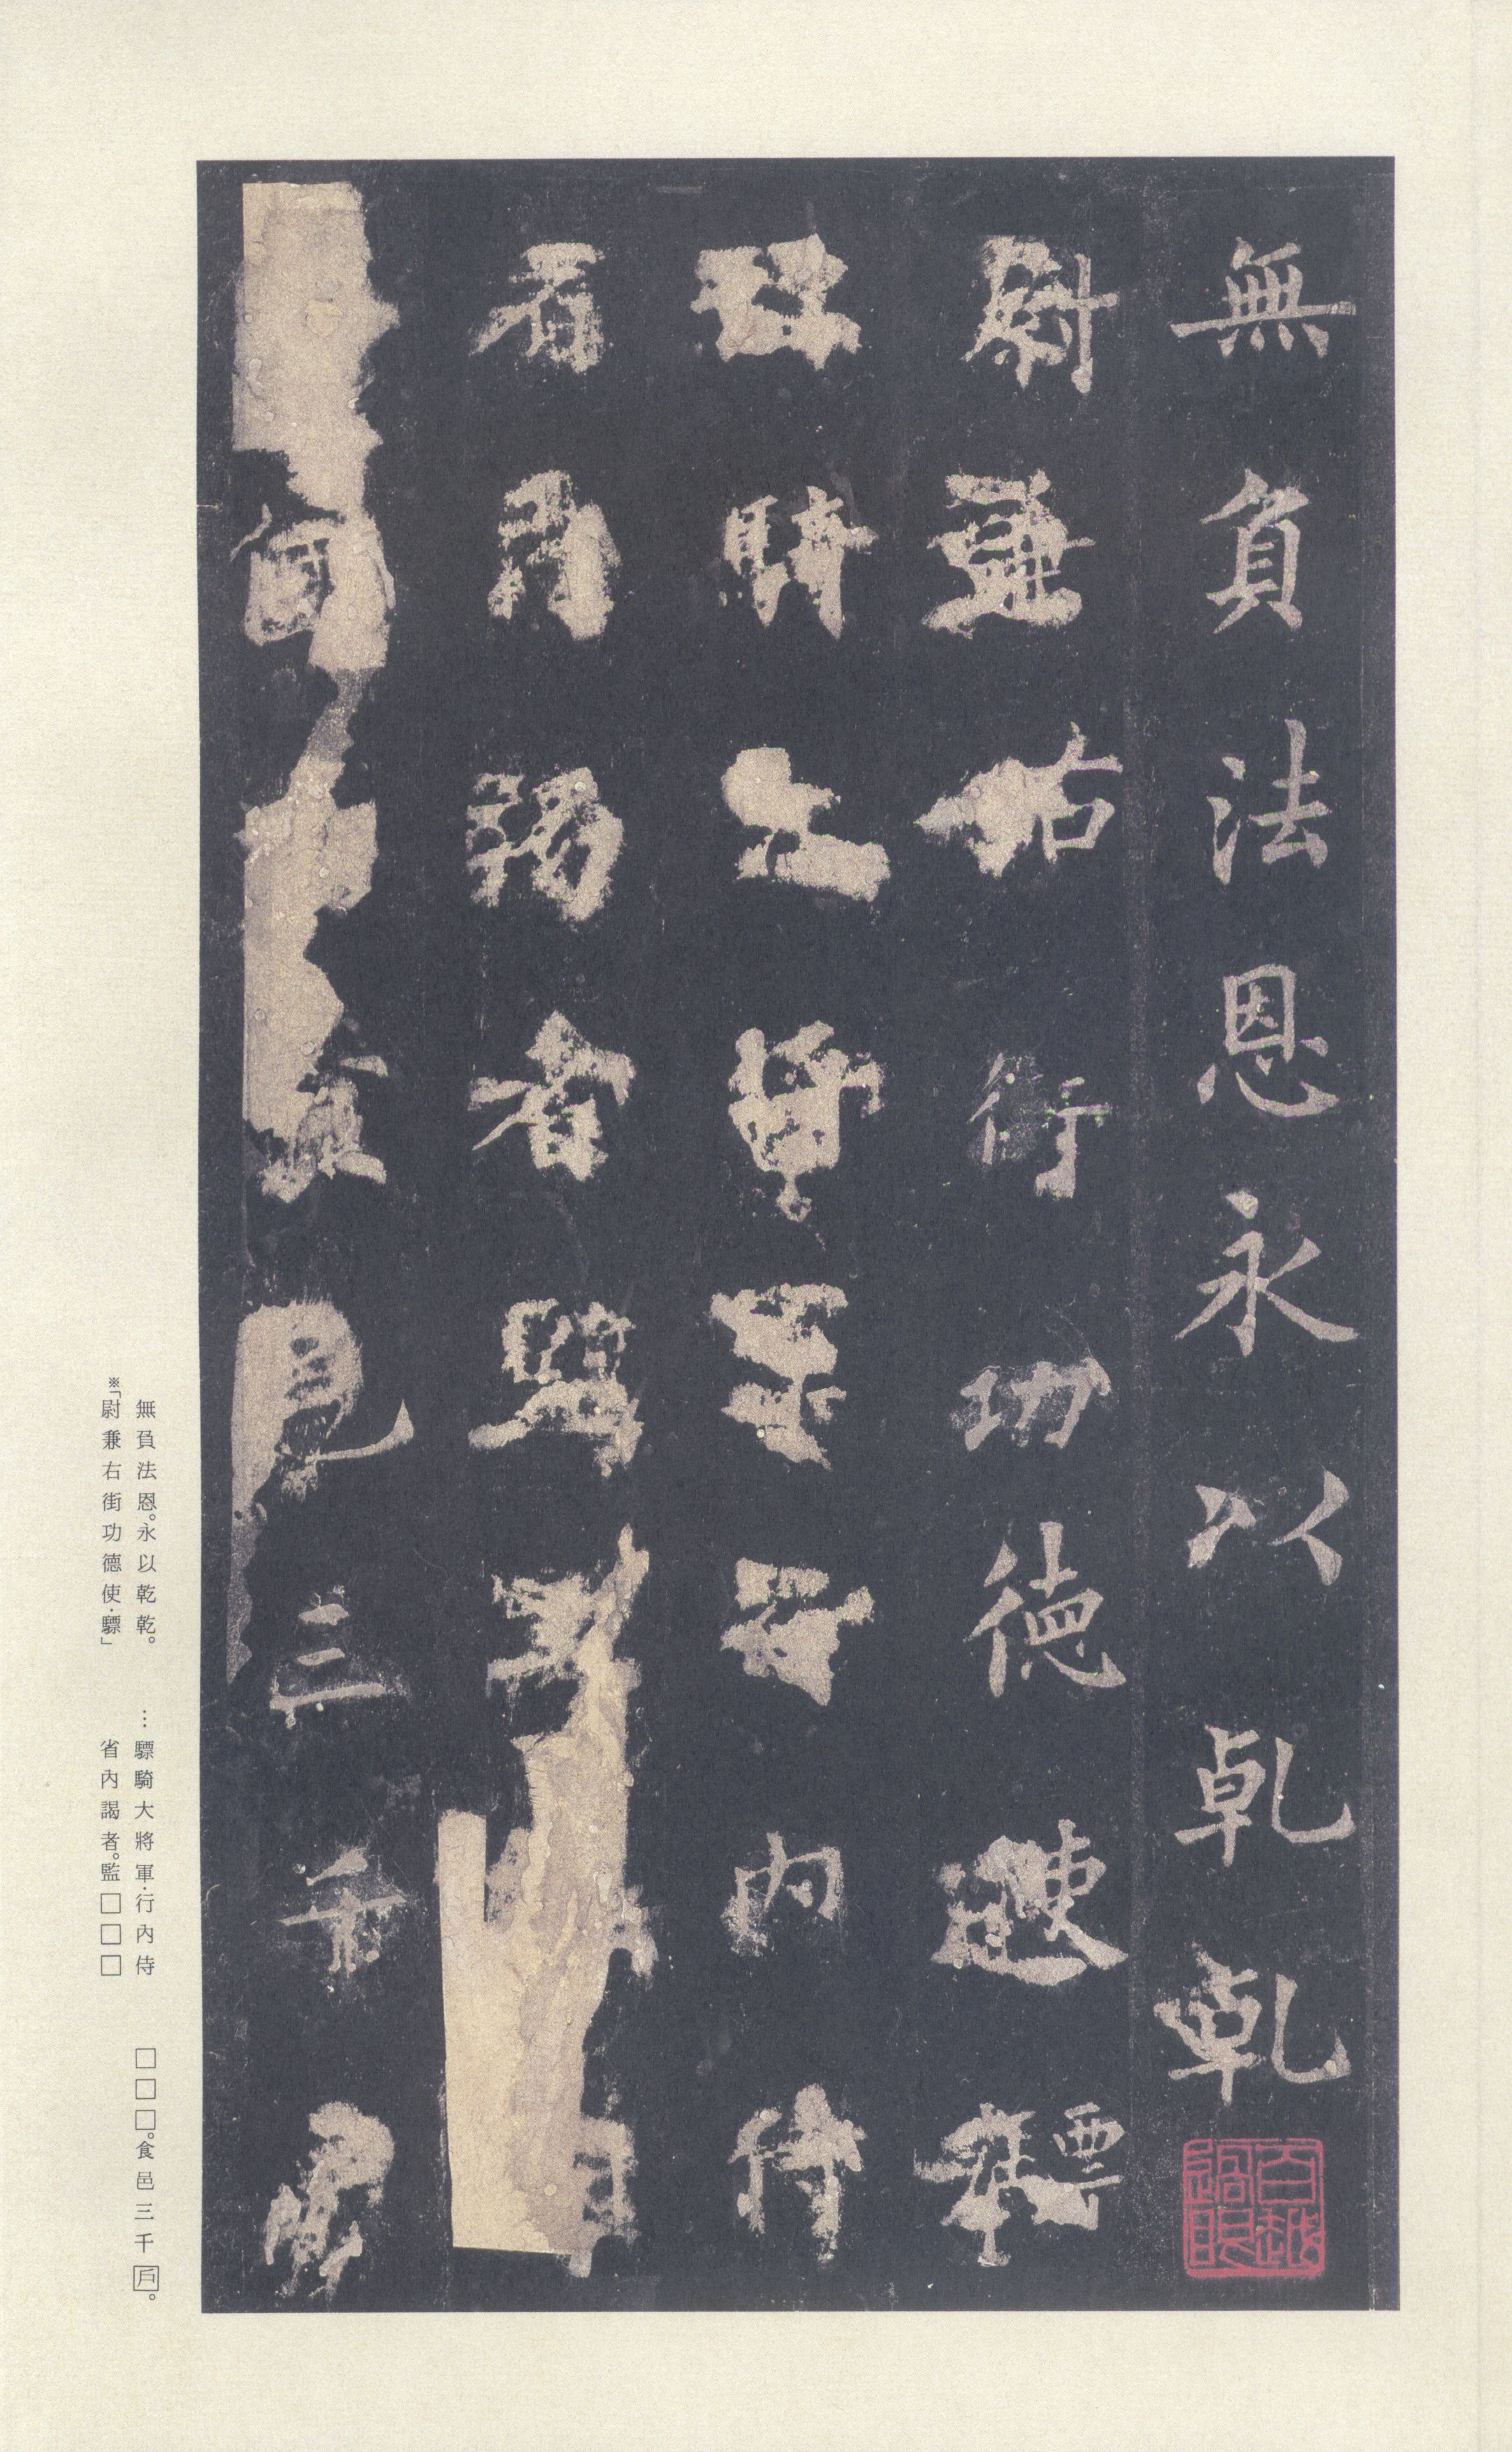 無負法恩永以乹乹
尉兼右街功德使驃
騎大將軍行內侍
省內謁者監
食邑三千戶
無負法恩。永以乾乾。 …驃騎大將軍·行內侍 □□□。食邑三千戶。
※「尉兼右街功德使·驃」 省內謁者。監□□□